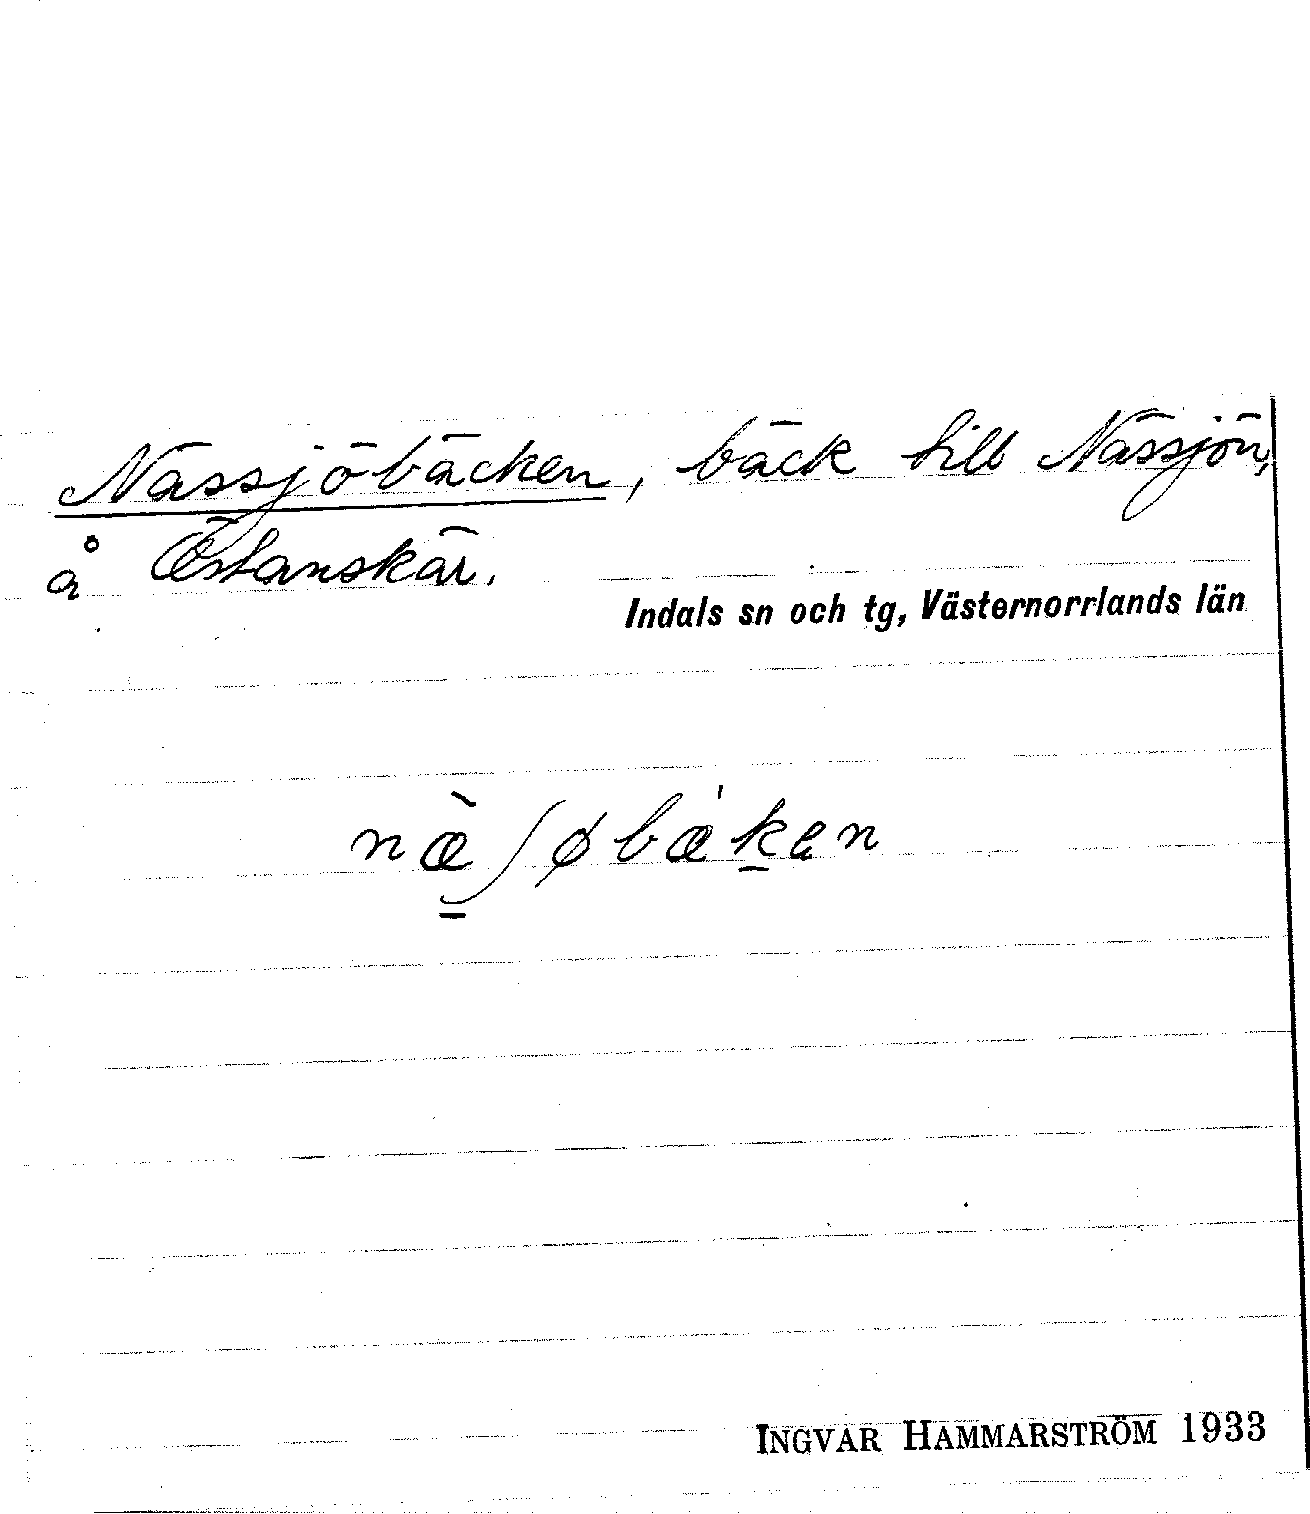 Nässjöbäcken, bäck till Nässjön,
å Östanskär.
Indals sn och tg, Västernorrlands län
næ̀ʃøbæ'kən
INGVAR HAMMARSTRÖM 1933